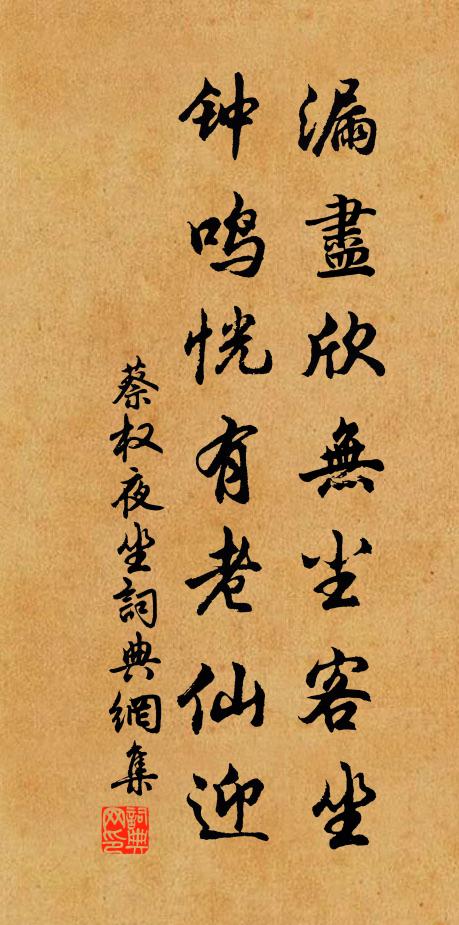 漏盡欣無尘客坐
钟鸣恍有老仙迎
蔡权夜坐詞典網集
詞典网印